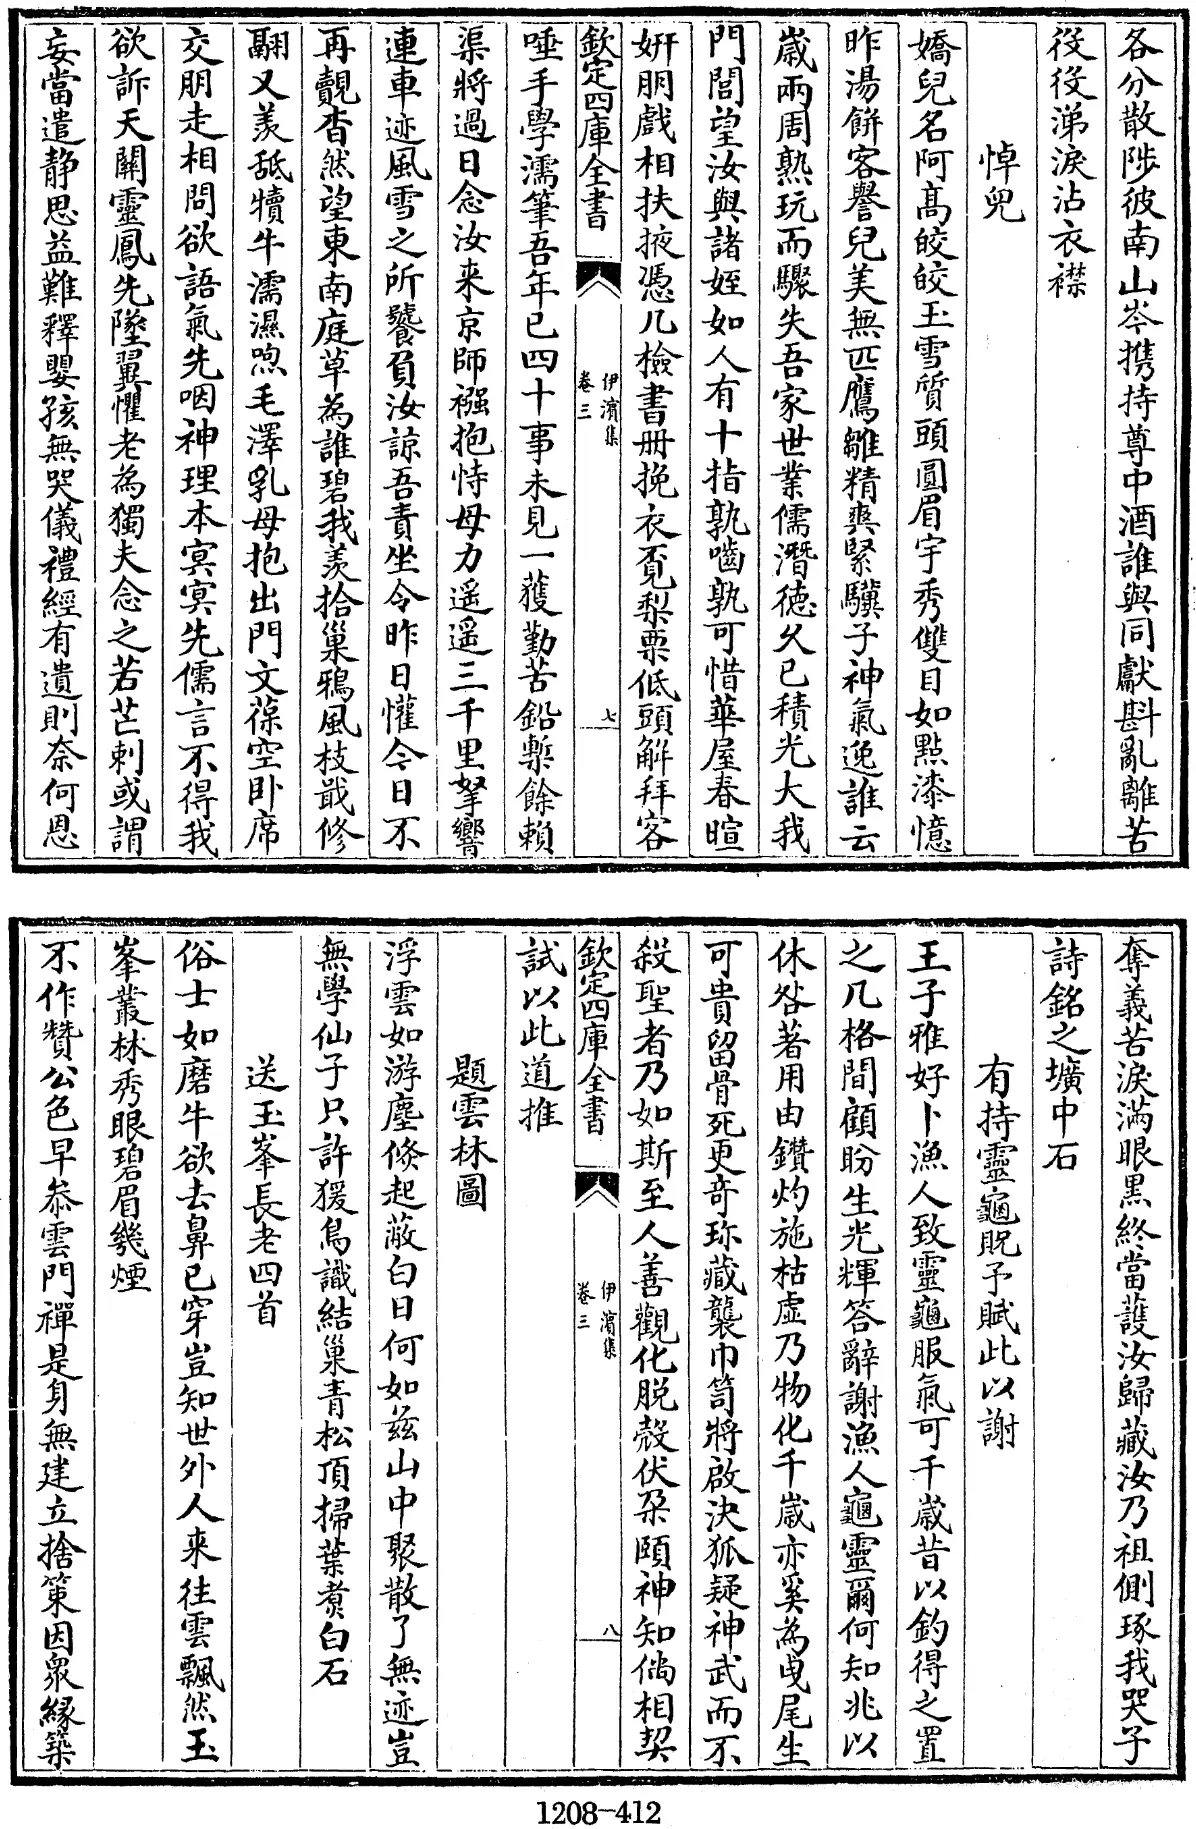 各分散陟彼南山岑携持尊中酒誰與同獻斟亂離苦
役役涕淚沾衣襟
悼兒
嬌兒名阿髙皎皎玉雪質頭圓眉宇秀雙目如點漆憶
昨湯餅客譽兒美無匹鷹雛精爽緊驥子神氣逸誰云
歳兩周熟玩而驟失吾家世業儒潛徳久已積光大我
門閭望汝與諸姪如人有十指孰嚙孰可惜華屋春暄
妍朋戲相扶掖憑几檢書冊挽衣覔梨栗低頭解拜客
欽定四庫全書
伊濱集
卷三
七
唾手學濡筆吾年已四十事未見一獲勤苦鉛槧餘頼
渠將過日念汝来京師襁抱恃母力遥遥三千里拏響
連車迹風雪之所饕負汝諒吾責坐令昨日懽今日不
再覿杳然望東南庭草為誰碧我羨拾巢鴉風枝戢修
翮又羨舐犢牛濡濕喣毛澤乳母抱出門文葆空卧席
交朋走相問欲語氣先咽神理本冥冥先儒言不得我
欲訴天關靈鳳先墜翼懼老為獨夫念之若芒刺或謂
妄當遣静思益難釋嬰孩無哭儀禮經有遺則奈何恩
奪義苦淚滿眼黒終當護汝歸藏汝乃祖側琢我哭子
詩銘之壙中石
有持靈龜貺予賦此以謝
王子雅好卜漁人致靈龜服氣可千歳昔以釣得之置
之几格間顧盼生光輝答辭謝漁人龜靈爾何知兆以
休咎著用由鑽灼施枯虚乃物化千歳亦奚為曵尾生
可貴留骨死更竒珎藏襲巾笥將啟決狐疑神武而不
殺聖者乃如斯至人善觀化脱殻伏朶頤神知倘相契
欽定四庫全書
伊濱集
卷三
八
試以此道推
題雲林圖
浮雲如游塵倐起蔽白日何如兹山中聚散了無迹豈
無學仙子只許猨鳥識結巢青松頂掃葉煮白石
送玉峯長老四首
俗士如磨牛欲去鼻已穿豈知世外人来往雲飄然玉
峯叢林秀眼碧眉幾煙
不作贊公色早叅雲門禪是身無建立捨策因衆縁築
1208-412